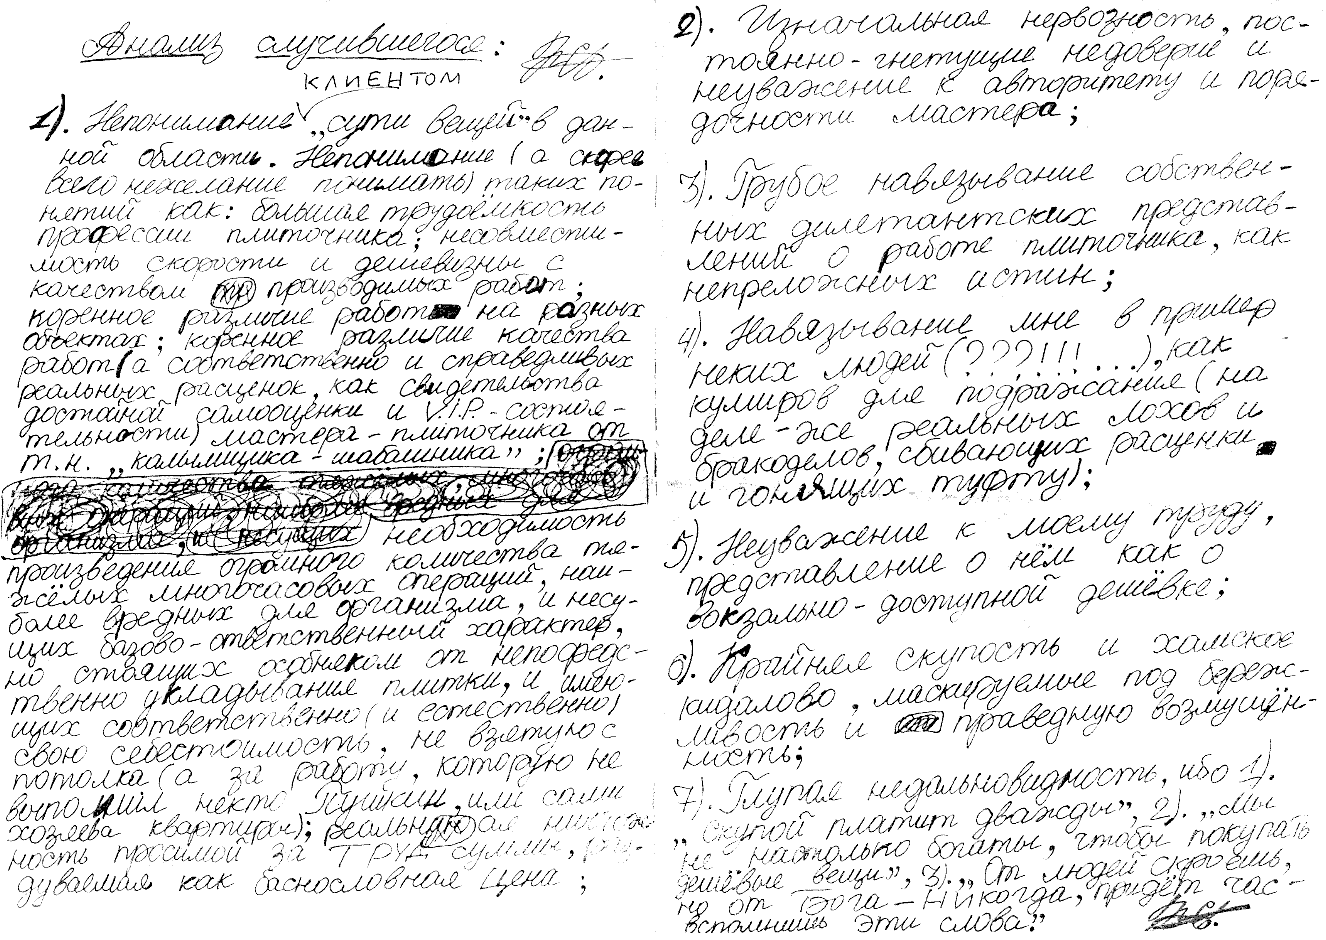 Анализ случившегося:
клиентом
1). Непонимание „сути вещей" в дан-
ной области. Непонимание (а скорее
всего нежелание понимать) таких по-
нятий как: большая трудоёмкость
професии плиточника; несовмести-
мость скорости и дешевизны с
качеством производимых работ;
коренное различие работ на разных
объектах; коренное различие качества
работ (а соответственно и справедливых
реальных расценок, как свидетельства
достойной самооценки и V.I.P.-состоя-
тельности) мастера-плиточника от
т.н. „калымщика-шабашника";
необходимость
произведения огромного количества тя-
жёлых многочасовых операций, наи-
более вредных для организма, и несу-
щих базово-ответственный характер,
но стоящих особняком от непосредс-
твенно укладывания плитки, и имею-
щих соответственно (и естественно)
свою себестоимость, не взятую с
потолка (а за работу, которую не
выполнил некто Пушкин, или сами
хозяева квартиры); реальная ничтож
ность просимой за ТРУД суммы, раз-
дуваемая как баснословная цена;
2). Изначальная нервозность, пос-
тоянно-гнетущие недоверие и
неуважение к авторитету и поря-
дочности мастера;
3). Грубое навязывание собствен-
ных дилетантских представ-
лений о работе плиточника, как
непреложных истин;
4). Навязывание мне в пример
неких людей (???!!!...), как
кумиров для подражания (на
деле-же реальных лохов и
бракоделов, сбивающих расценки
и гонящих туфту);
5). Неуважение к моему труду,
представление о нём как о
вокзально-доступной дешёвке;
6). Крайняя скупость и хамское
кидалово, маскируемые под береж-
ливость и праведную возмущён-
ность;
7). Глупая недальновидность, ибо 1).
„Скупой платит дважды", 2). „Мы
не настолько богаты, чтобы покупать
дешёвые вещи", 3). „От людей скроешь,
но от Бога – Никогда, придёт час-
вспомнишь эти слова!"